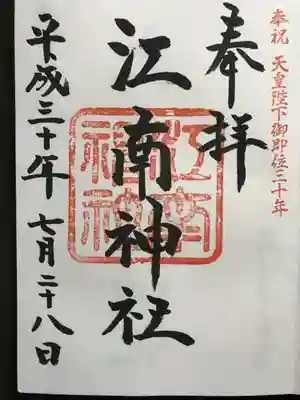 奉祝 天皇陛下御即位三十年
奉拝
江南神社
平成三十年 七月二十八日